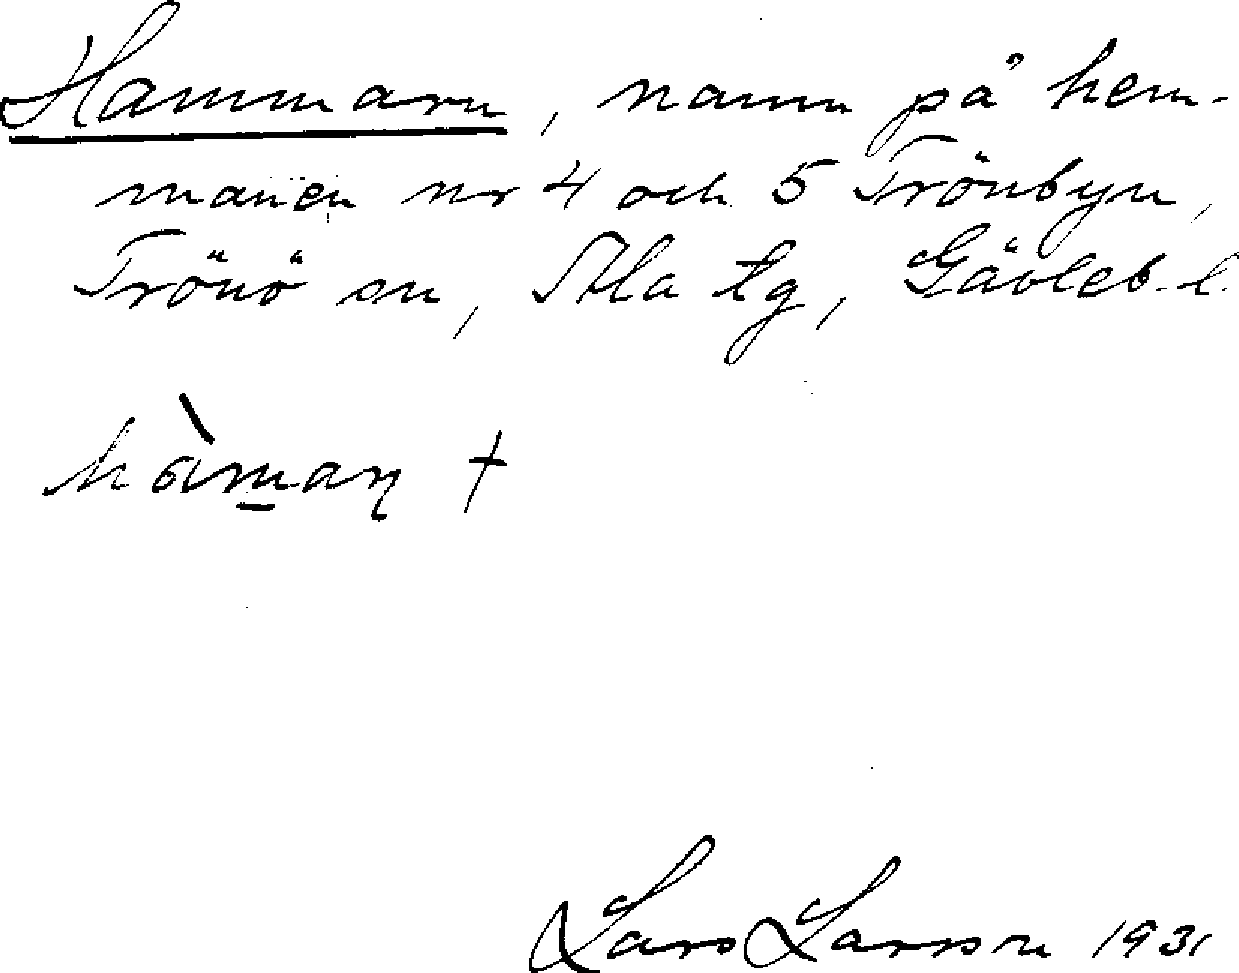 Hammarn, namn på hem-
manen nr 4 och 5 Trönbyn,
Trönö sn, Ala tg, Gävleb. l.
hàmaɳ +
Lars Larsson 1931